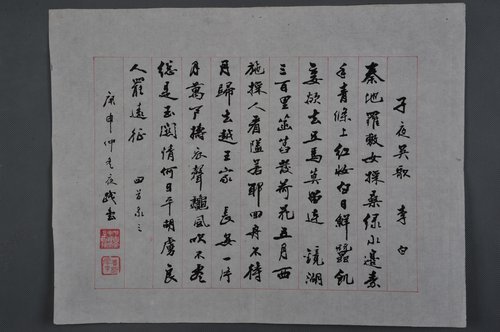 子夜吴歌 李白
秦地羅敷女採桑绿水邊素
手青條上红妝白日鮮蠶飢
妾欲去五馬莫留連 镜湖
三百里菡萏發荷花五月西
施採人看隘若耶回舟不待
月歸去越王家 長安一片
月萬户擣衣聲秋風吹不盡
總是玉関情何日平胡虜良
人罷遠征 田
庚申仲夜